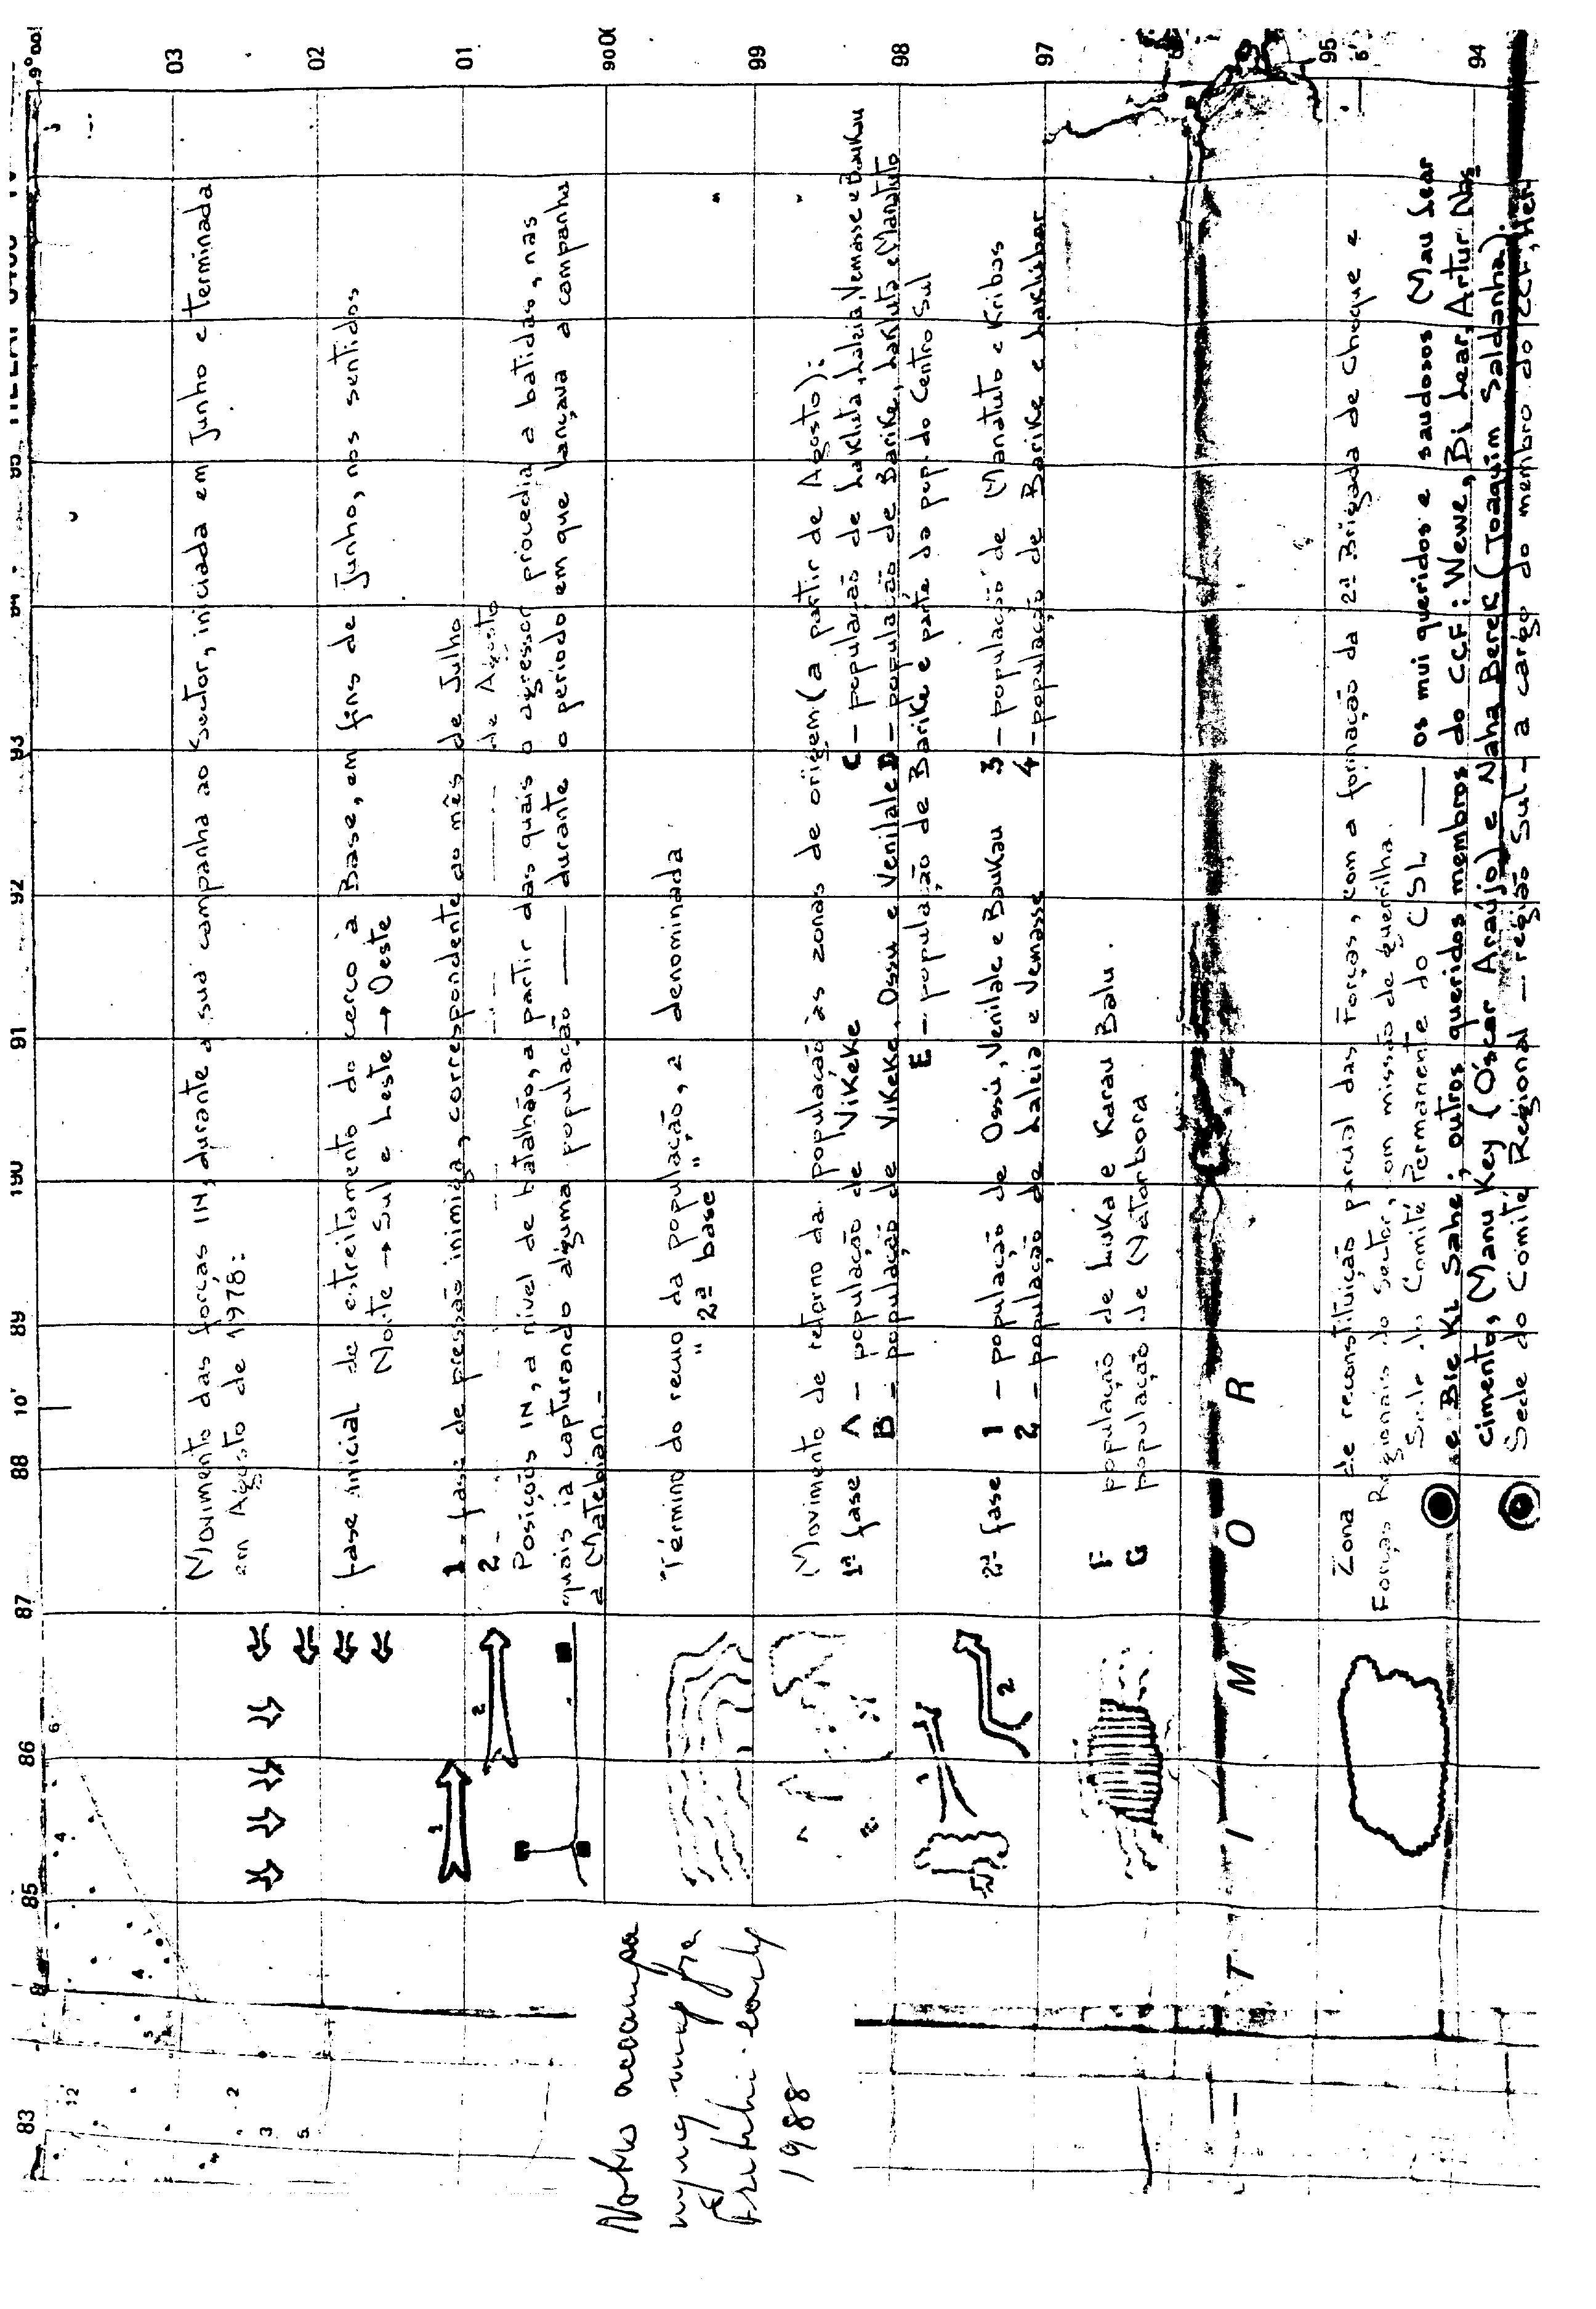 Notes accompa
nying map fra
Fretilin early
1988
Movimento das forças IN, durante a sua campanha ao Sector, iniciada em Junho e terminada
em Agosto de 1978:
fase inicial de estreitamento do cerco à Base, em fins de Junho, nos sentidos
Norte → Sul e Leste → Oeste
1 - fase de pressão inimiga, correspondente ao mês de Julho
2 - " " " de Agosto
Posições IN, a nível de batalhão, a partir das quais o agressor procedia a batidas, nas
quais ia capturando alguma população — durante o período em que lançava a campanha
a Matebian.-
Término do recuo da população, a denominada
" 2ª base "
Movimento de retorno da população às zonas de origem (a partir de Agosto):
1ª fase A - população de Vikeke C - população de Lakluta, Laleia, Vemasse e Baukau
B - população de Vikeke, Ossú e Venilale D - população de Barike, Lakluta e Manatuto
E - população de Barike e parte da pop. do Centro Sul
2ª fase 1 - população de Ossú, Venilale e Baukau 3 - população de Manatuto e Kribas
2 - população de Laleia e Vemasse 4 - população de Barike e Laklubar
F população de Luka e Karau Balu.
G população de Natarbora
T I M O R
Zona de reconstituição parcial das Forças, com a formação da 2ª Brigada de Choque e
Forças Regionais do Sector, com missão de guerrilha.
Sede do Comité Permanente do CSL — os mui queridos e saudosos (Mau Lear
e Bie Ki Sahe; outros queridos membros do CCF: Wewe, Bi Lear, Artur Nas
cimento, Manu Key (Óscar Araújo) e Naha Berek (Joaquim Saldanha).
Sede do Comité Regional — região Sul - a cargo do membro do CCF,
83
85
86
87
88
10'
89
190
91
92
93
03
02
01
99
98
97
95
94